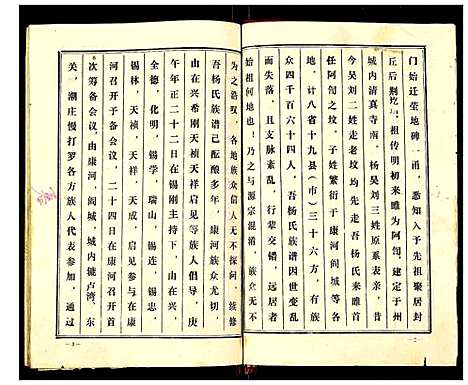 门始迁茔地碑一甬，悉知入予先祖聚居封
丘后荆圪垱，祖传明初来睢为阿訇，建定于州
城内清真寺南，杨吴刘三姓原系表亲，昔
今吴刘二姓走老坟均先走吾杨氏来睢首
任阿訇之坟，子姓衍于康河阎城等各
地，计八省十九县（市）三十六方，有族
众四千百六十四人，吾杨氏族谱因世变乱
而失落，且支脉紊乱，行辈交错，远居者
始祖何地也！乃之与源宗混淆，族众无不
—2—
为之浩叹，各地族众信人无不探问，续修
吾杨氏族谱己酝酿多年，康河族众尤切，
由在兴希刚天棋天祥启见等族人倡导，庚
午年正二十二日在锡刚主持下，由在兴
全德，化明，锡学，瑞山，锡连，锡忠
锡林，天棋，天祥，天成，启见参与在康
河召开予备会议，二十四日在康河召开首
次筹备会议，由康河，阎城，城内辘卢湾、东
关，潮庄慢打罗各方族人代表参加，通过
—3—